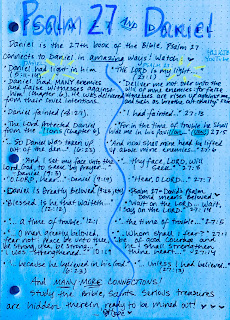 PSALM 27 and DANIEL
Daniel is the 27th book of the Bible. Psalm 27
connects to Daniel in amazing ways! Watch:
Daniel had light in him
(5:11-14)
"The LORD is my light..."
(27:1)
Daniel had MANY enemies
and false witnesses against
him (chapter 6). He was delivered
from their cruel intentions.
"Deliver me not over unto the
will of mine enemies: for false
witnesses are risen up against me,
and such as breathe out cruelty."
Daniel fainted (8:27).
"I had fainted..." 27:13
The Lord protected Daniel
from the lions (Chapter 6)
"For in the time of trouble he shall
hide me in his pavilion..." (27:5)
"...So Daniel was taken up
out of the den..." (6:23)
"And now shall mine head be lifted
up above mine enemies..." 27:6
"And I set my face unto the
Lord God, to seek by prayer..."
Daniel (9:3)
"...thy face, LORD, will
I seek." 27:8
"O LORD, Hear..." Daniel (9:19)
"Hear, O LORD..." 27:7
Daniel is greatly beloved
Psalm 27 = David's psalm
David means beloved
"Blessed is he that waiteth..."
12:12
"Wait on the LORD... Wait,
I say, on the LORD." 27:14
"...a time of trouble..." 12:1
"...the time of trouble..." 27:5
"...O man greatly beloved,
fear not: peace be unto thee,
be strong, yea, be strong..."
I was strengthened..." 10:19
"...Whom shall I fear?" 27:1
"...be of good courage, and
he shall strengthen
thine heart..." 27:14
"...because he believed in his God."
(6:23)
"...unless I had believed..."
(27:13)
And MANY MORE CONNECTIONS!
Study the Bible, Saints. Serious treasures
are hidden therein ready to be mined out!